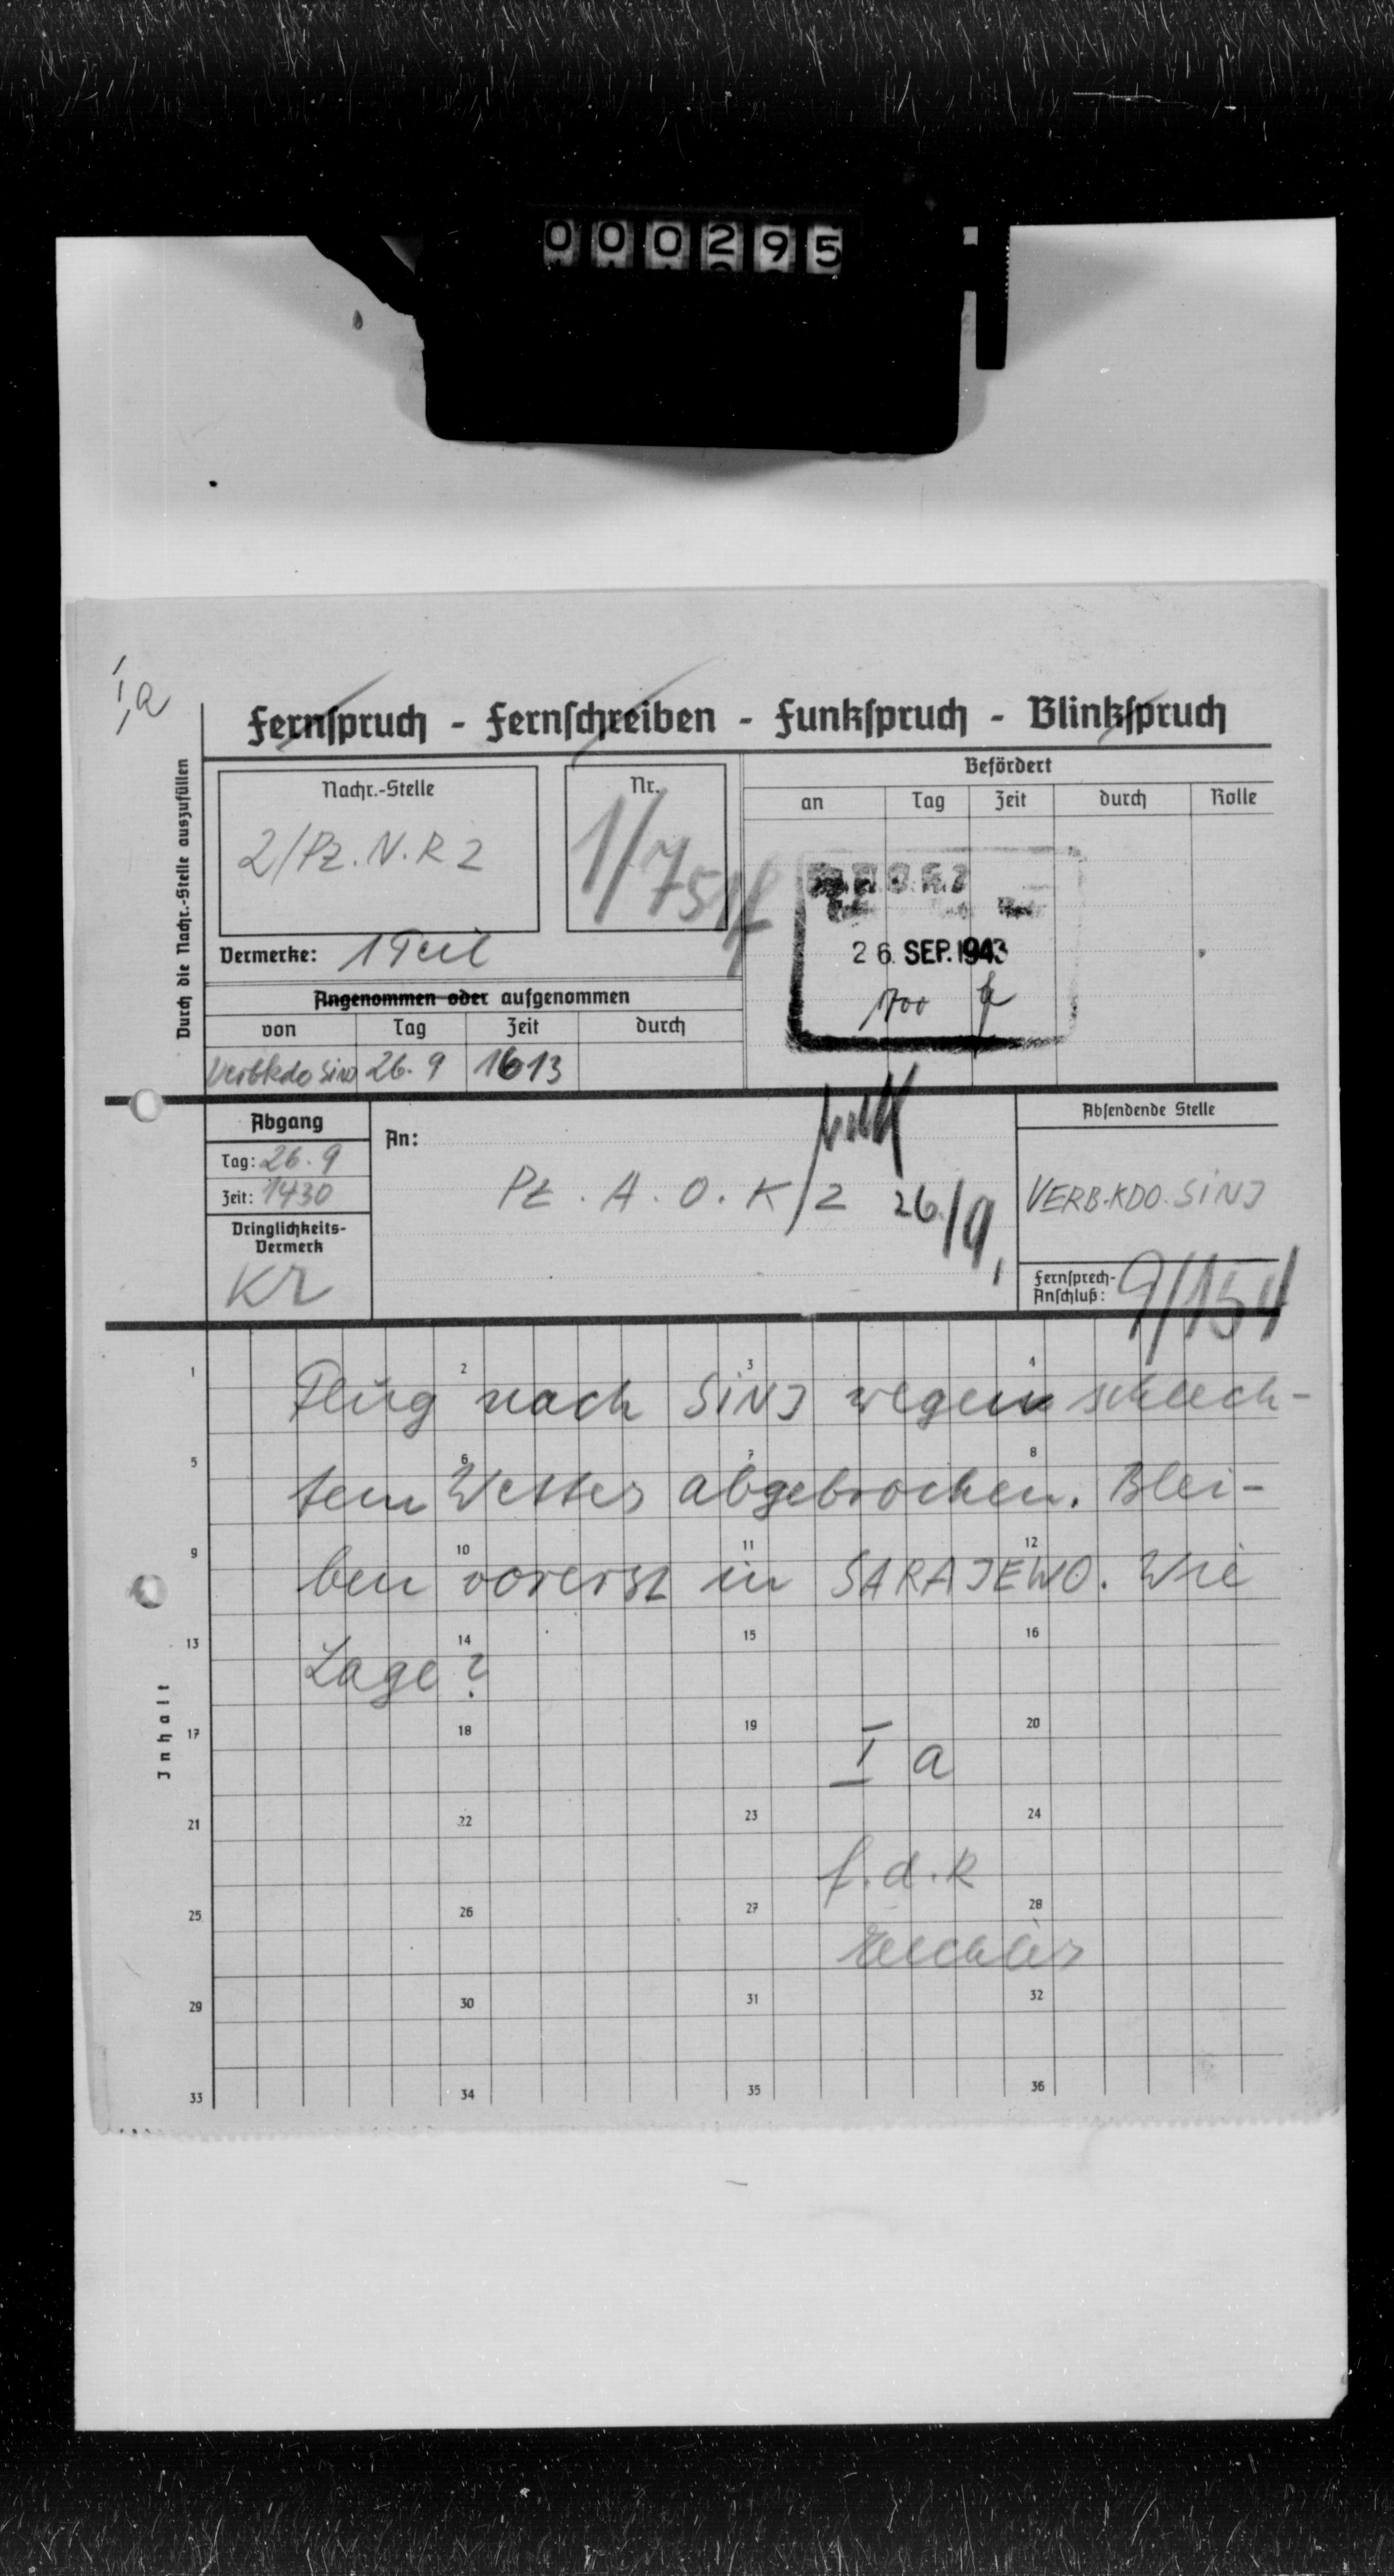 000295
I,a
Fernspruch - Fernschreiben - Funkspruch - Blinkspruch
Durch die Nachr.-Stelle auszufüllen
Nachr.-Stelle
2/Pz.N.R 2
Nr.
1/751
Befördert
an Tag Zeit durch Rolle
26. SEP. 1943
1700
Vermerke: 1 Teil
Angenommen oder aufgenommen
von Tag Zeit durch
Verbkdo Sinj 26.9 1613
Abgang
Tag: 26.9
Zeit: 1430
Dringlichkeits-
Vermerk
KR
An:
Pz. A. O. K/2 26./9.
Absendende Stelle
VERB.KDO. SINJ
Fernsprech-
Anschluß:
9/154
Inhalt
1 2 3 4
Flug nach SINJ wegen schlech-
5 6 7 8
tem Wetter abgebrochen. Blei-
9 10 11 12
ben vorerst in SARAJEWO. Wie
13 14 15 16
Lage?
17 18 19 20
I a
21 22 23 24
f.d.R
25 26 27 28
29 30 31 32
33 34 35 36